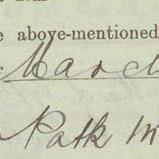 e above-mentioned
March
Patk M